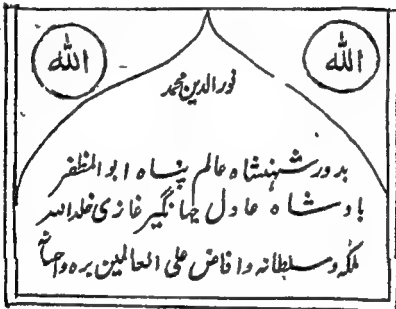 الله
الله
نور الدین محمد
بدور شہنشاہ عالم پناہ ابوالمظفر
بادشاہ عادل جہانگیر غازی خلد اللہ
ملکہ و سلطانہ و افاض علی العالمین برہ و احسانہ